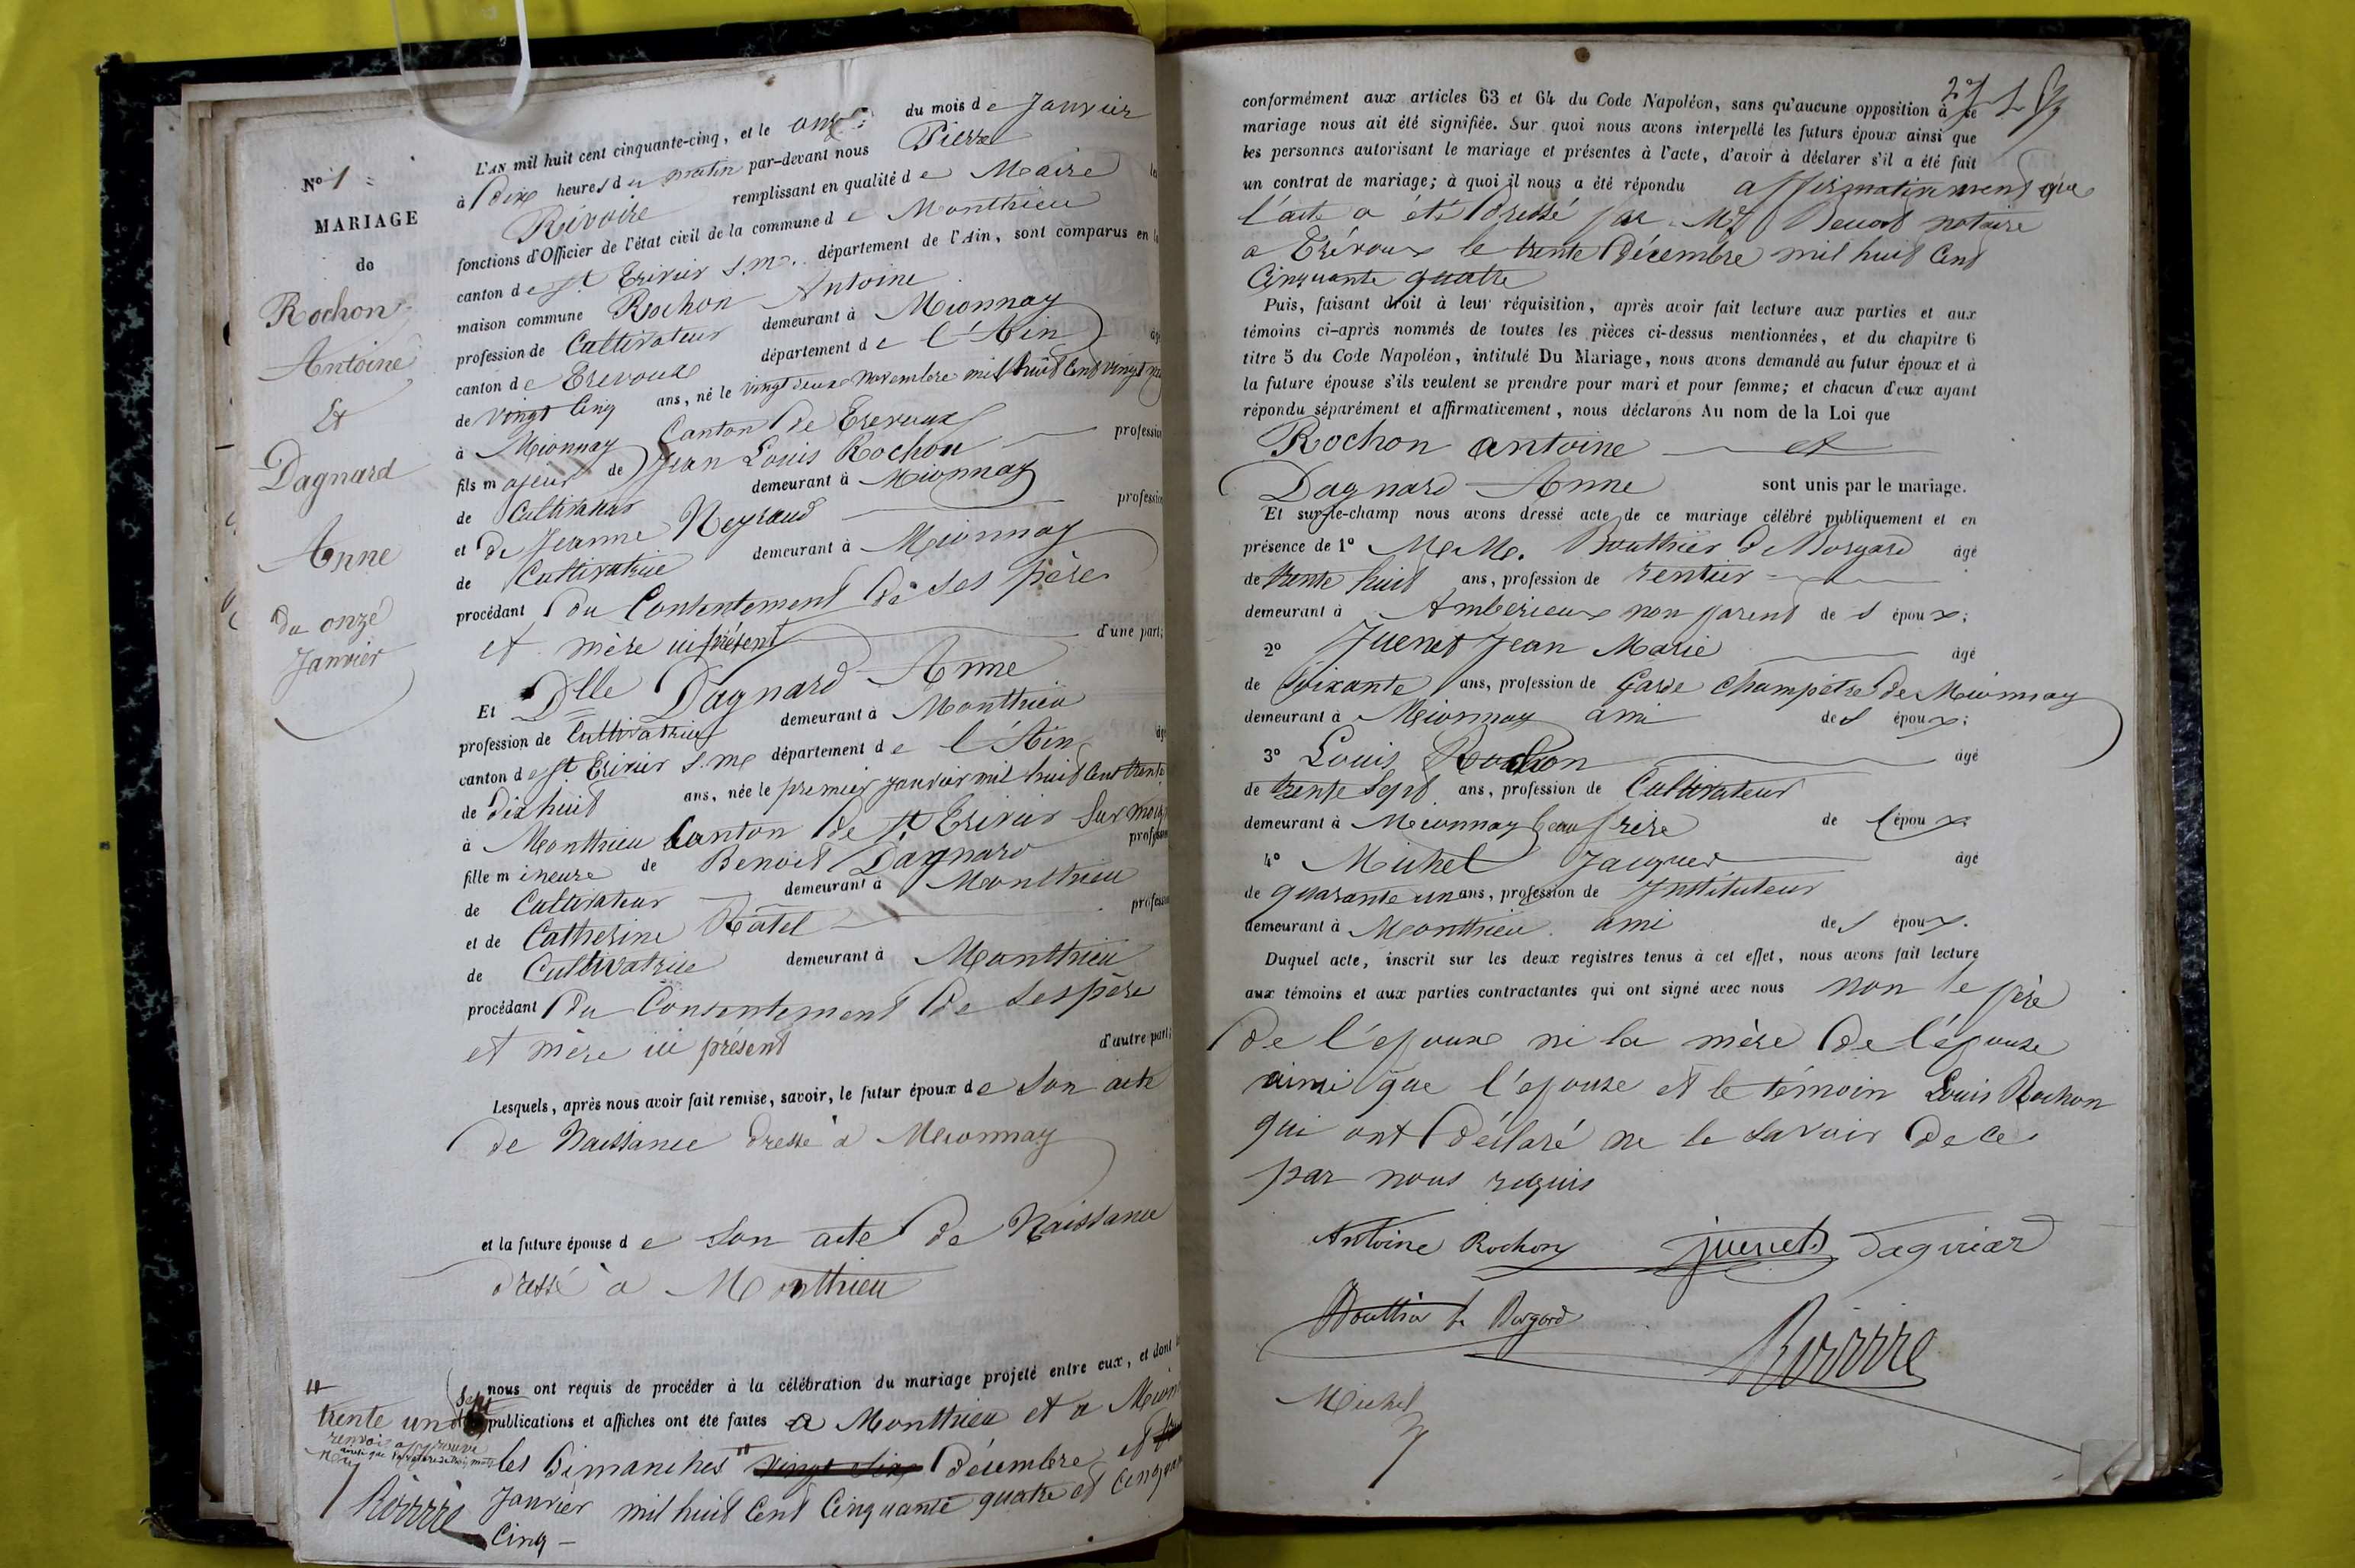 N° 1
MARIAGE
de
Rochon
Antoine
&
Dagnard
Anne
du onze
Janvier
L'AN mil huit cent cinquante-cinq, et le onze du mois de Janvier
à dix heures du matin par-devant nous Pierre
Rivoire remplissant en qualité de Maire les
fonctions d'Officier de l'état civil de la commune de Monthieu
canton de St Trivier s. m. département de l'Ain, sont comparus en la
maison commune Rochon Antoine
profession de Cultivateur demeurant à Mionnay
canton de Trevoux département de l'Ain âgé
de vingt cinq ans, né le vingt deux novembre mil huit cent vingt
à Mionnay Canton de Trevoux
fils majeur de Jean Louis Rochon profession
de Cultivateur demeurant à Mionnay
et de Jeanne Neyraud profession
de Cultivatrice demeurant à Mionnay
procédant du Consentement de ses père
et mère ici présent d'une part;
Et Dlle Dagnard Anne
profession de Cultivatrice demeurant à Monthieu
canton de St Trivier s. m. département de l'Ain âgée
de dix huit ans, née le premier janvier mil huit cent trente
à Monthieu Canton de St Trivier sur moig
fille mineure de Benoit Dagnard profession
de Cultivateur demeurant à Monthieu
et de Catherine Ratel profession
de Cultivatrice demeurant à Monthieu
procédant du Consentement de ses père
et mère ici présent d'autre part;
Lesquels, après nous avoir fait remise, savoir, le futur époux de son acte
de Naissance dressé à Mionnay
et la future épouse de son acte de Naissance
dressé a Monthieu
nous ont requis de procéder à la célébration du mariage projeté entre eux, et dont
publications et affiches ont été faites a Monthieu et a Mionn
les Dimanches " vingt six Décembre et
Janvier mil huit Cent Cinquante quatre et Cinquante
Cinq —
"
trente un
renvoi approuvé
Rivoire
conformément aux articles 63 et 64 du Code Napoléon, sans qu'aucune opposition à ce
mariage nous ait été signifiée. Sur quoi nous avons interpellé les futurs époux ainsi que
les personnes autorisant le mariage et présentes à l'acte, d'avoir à déclarer s'il a été fait
un contrat de mariage; à quoi il nous a été répondu affirmativement que
l'acte a été dressé par Me notaire
a Trévoux le trente décembre mil huit Cent
Cinquante quatre
Puis, faisant droit à leur réquisition, après avoir fait lecture aux parties et aux
témoins ci-après nommés de toutes les pièces ci-dessus mentionnées, et du chapitre 6
titre 5 du Code Napoléon, intitulé Du Mariage, nous avons demandé au futur époux et à
la future épouse s'ils veulent se prendre pour mari et pour femme; et chacun d'eux ayant
répondu séparément et affirmativement, nous déclarons Au nom de la Loi que
Rochon antoine — et
Dagnard Anne sont unis par le mariage.
Et sur-le-champ nous avons dressé acte de ce mariage célébré publiquement et en
présence de 1° M. M. Bouthier de Borgard âgé
de trente huit ans, profession de rentier
demeurant à Ambérieux non parent des époux;
2° Juenet Jean Marie âgé
de soixante ans, profession de Garde champêtre de Mionnay
demeurant à Mionnay ami des époux;
3° Louis Rochon âgé
de trente sept ans, profession de Cultivateur
demeurant à Mionnay beau frère de l'époux
4° Michel Jacques âgé
de quarante un ans, profession de Instituteur
demeurant à Monthieu ami des époux.
Duquel acte, inscrit sur les deux registres tenus à cet effet, nous avons fait lecture
aux témoins et aux parties contractantes qui ont signé avec nous non le père
de l'epoux ni la mère de l'épouse
ainsi que l'epouse et le témoin Louis Rochon
qui ont déclaré ne le savoir de ce
par nous requis
Antoine Rochon juenet Dagniar
Bouthier de Borgard
Rivoire
Michel